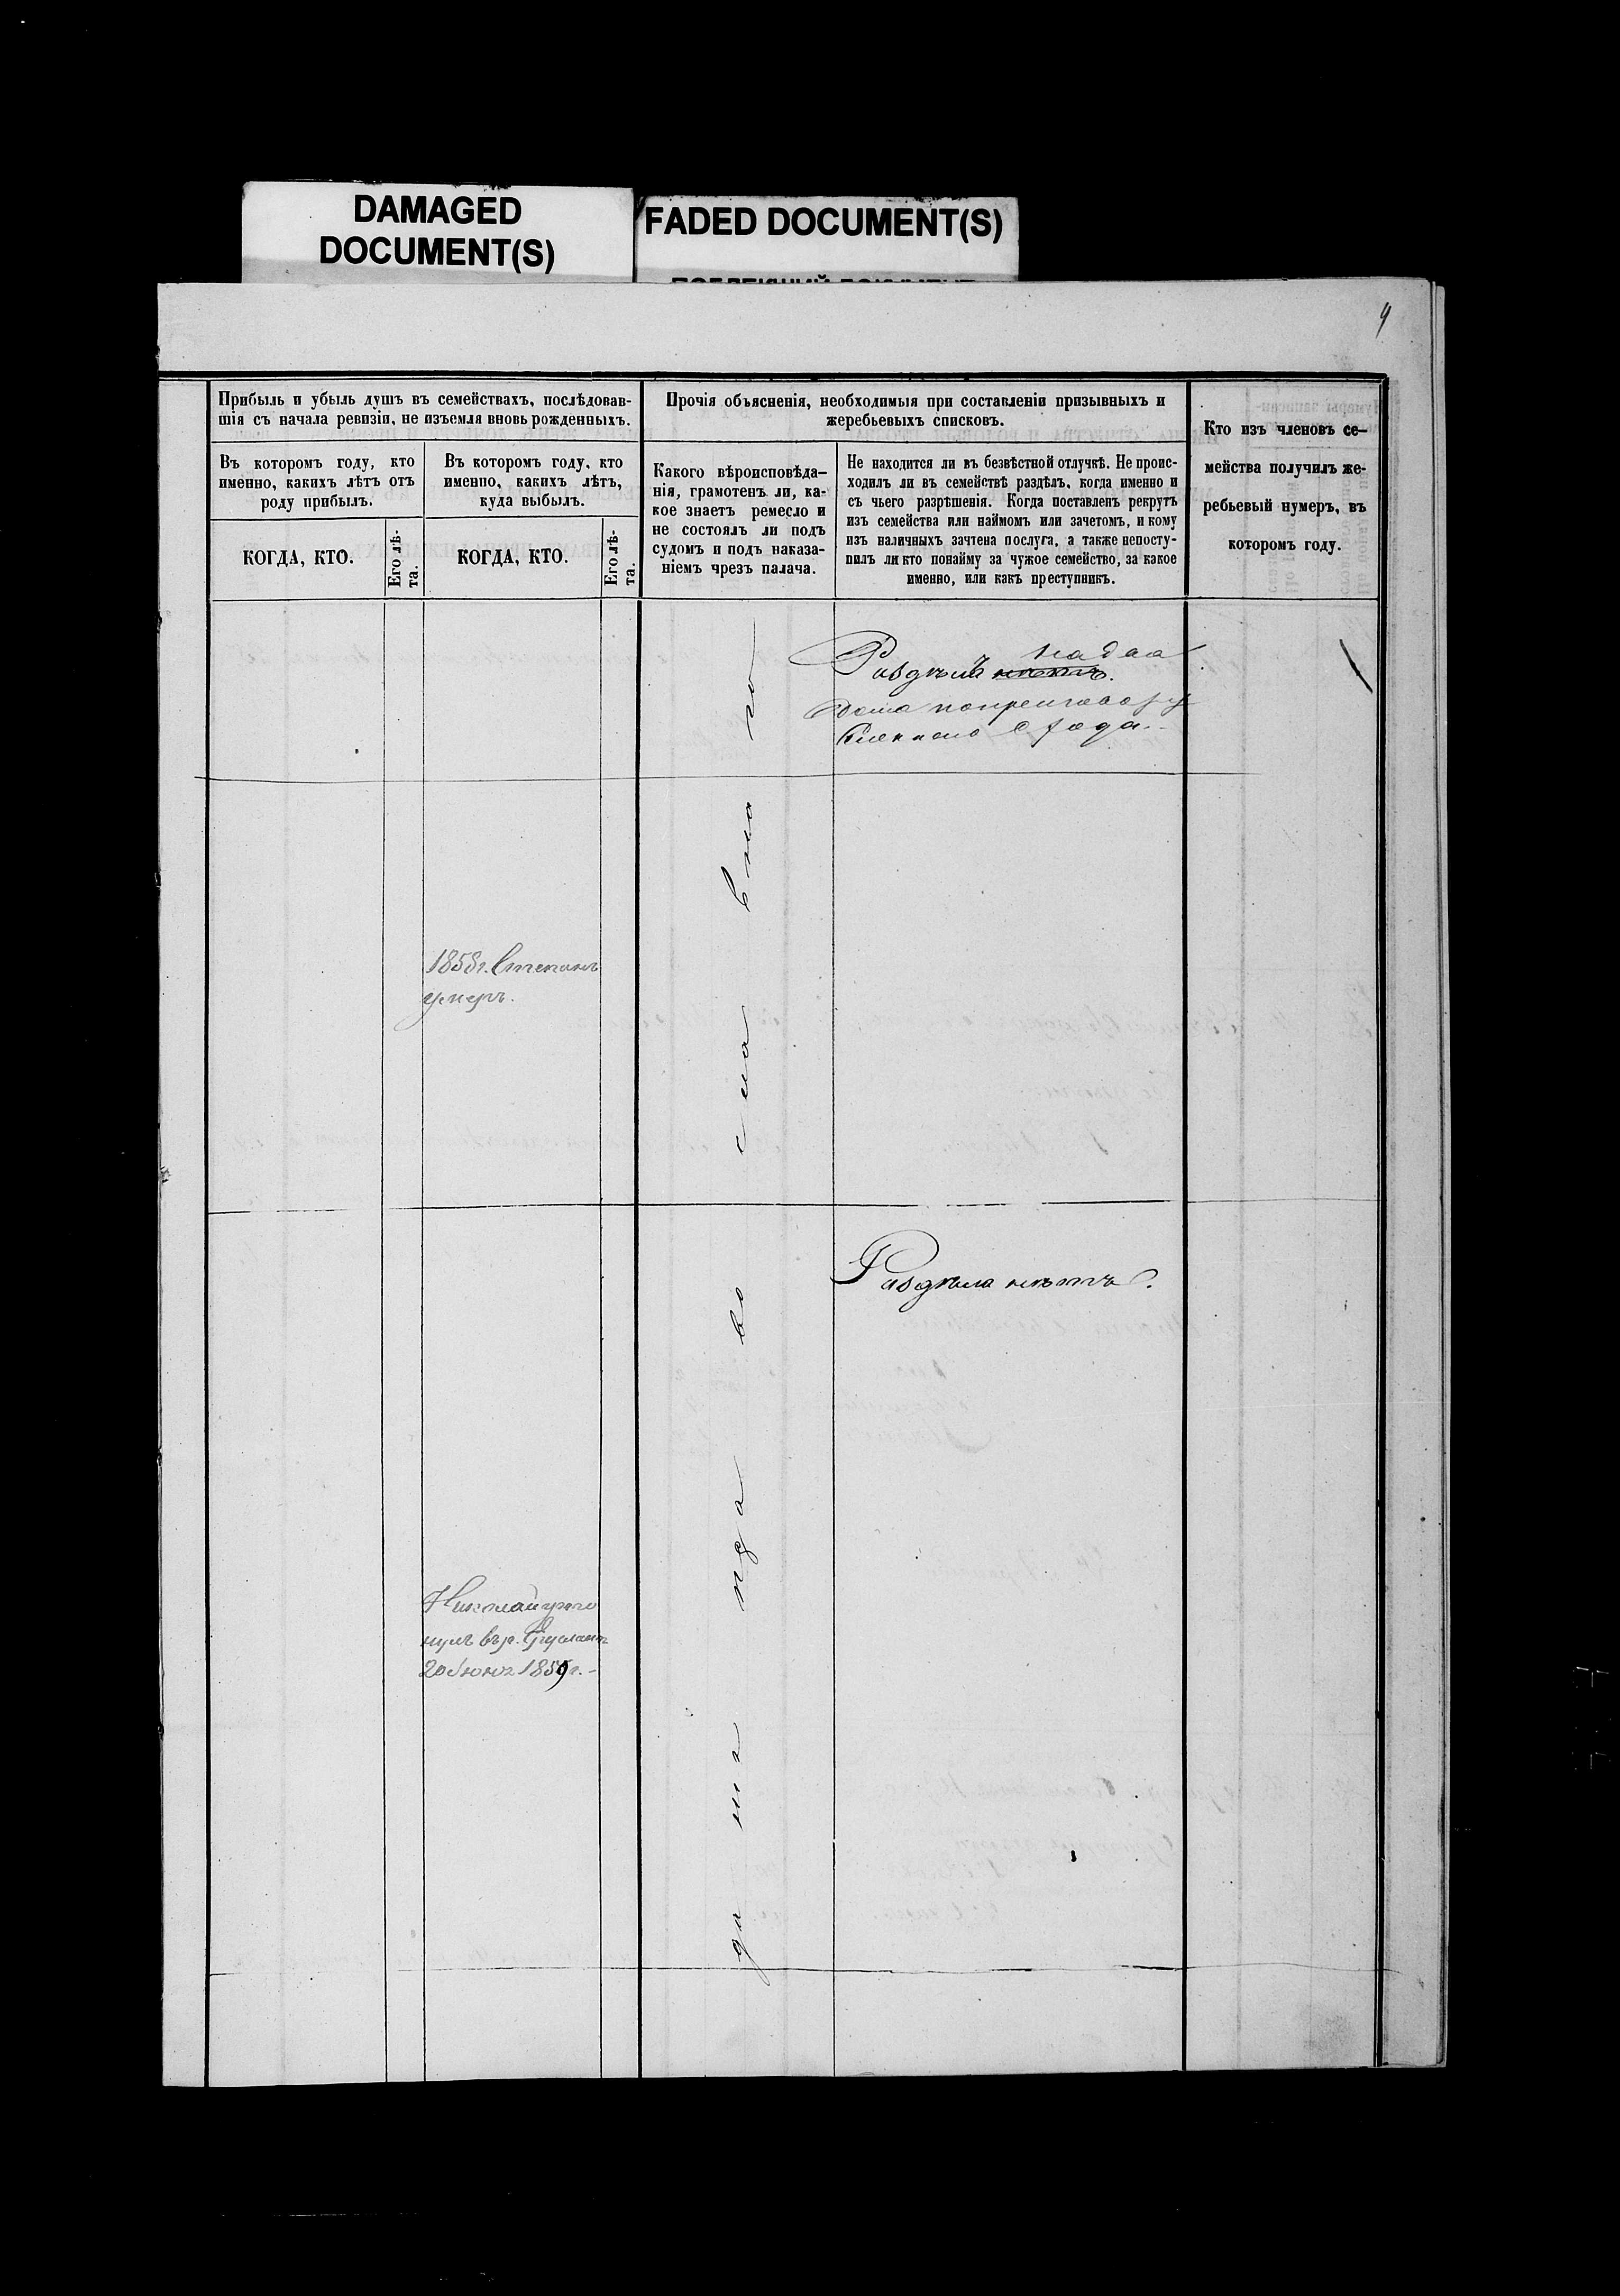 DAMAGED
DOCUMENT(S)
FADED DOCUMENT(S)
Прибыль и убыль душъ въ семействахъ, послѣдовав-
шія съ начала ревизіи, не изъемля вновь рожденныхъ.
Въ которомъ году, кто
именно, какихъ лѣтъ отъ
роду прибылъ.
КОГДА, КТО.
Его лѣ-
та.
Въ которомъ году, кто
именно, какихъ лѣтъ,
куда выбылъ.
КОГДА, КТО.
Его лѣ-
та.
Прочія объясненія, необходимыя при составленіи призывныхъ и
жеребьевыхъ списковъ.
Какого вѣроисповѣда-
нія, грамотенъ ли, ка-
кое знаетъ ремесло и
не состоялъ ли подъ
судомъ и подъ наказа-
ніемъ чрезъ палача.
Не находится ли въ безвѣстной отлучкѣ. Не проис-
ходилъ ли въ семействѣ раздѣлъ, когда именно и
съ чьего разрѣшенія. Когда поставленъ рекрутъ
изъ семейства или наймомъ или зачетомъ, и кому
изъ наличныхъ зачтена послуга, а также непосту-
пилъ ли кто понайму за чужое семейство, за какое
именно, или какъ преступникъ.
Кто изъ членовъ се-
мейства получилъ же-
ребьевый нумеръ, въ
которомъ году.
на два
Раздѣлъ нѣтъ.
дома по приговору
года.
1858г. Степанъ
умеръ.
Раздѣла нѣтъ.
Николай уто
нулъ въ р.
20 Іюня 1859г.
православнаго